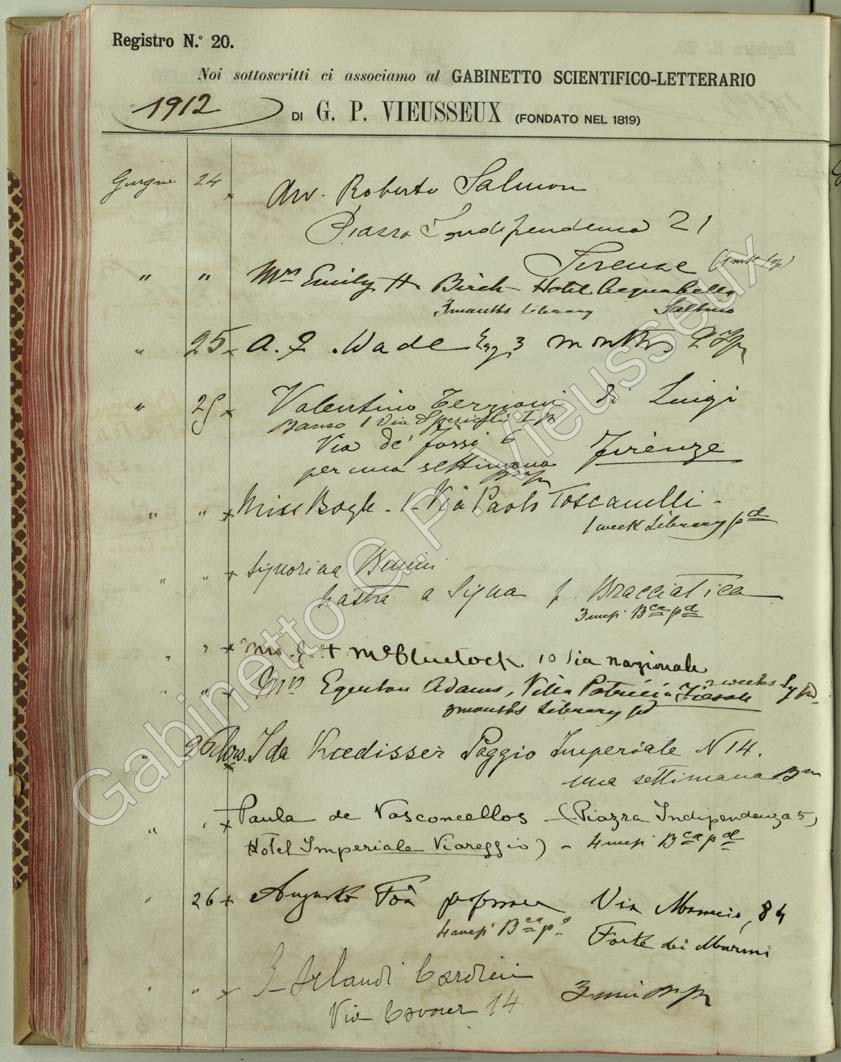 Registro N.º 20.
Noi sottoscritti ci associamo al GABINETTO SCIENTIFICO-LETTERARIO
1912 DI G. P. VIEUSSEUX (FONDATO NEL 1819)
Giugno 24 Avv. Roberto Salmon
Piazza Indipendenza 21
Firenze
" " Mrs Emily H Birch - Hotel Acquabella
3 months Library Saltino
" 25 A. J. Wade Esq. 3 months
" 25 Valentino di Luigi
Via de' Fossi 6 Firenze
per una settimana
" " Miss Bogle - 1 - Via Paolo Toscanelli -
1 week Library pd
" " Signorina Benini
Lastra a Signa p. Bracciatica
3 mesi Bca pd
" " 10 Via Nazionale
2 weeks
" " Mrs Egerton Adams, Villa Patricia Fiesole
3 months Library pd
" 26 Mrs. Ida Poggio Imperiale N 14.
una settimana
" " Paula de Vasconcellos - (Piazza Indipendenza 5,
Hotel Imperiale Viareggio) - 4 mesi Bca pd
" 26 Augusto Foà professore Via 84
4 mesi Bca pd Forte dei Marmi
" "
Via Cavour 14 3 mesi
Gabinetto G.P. Vieusseux